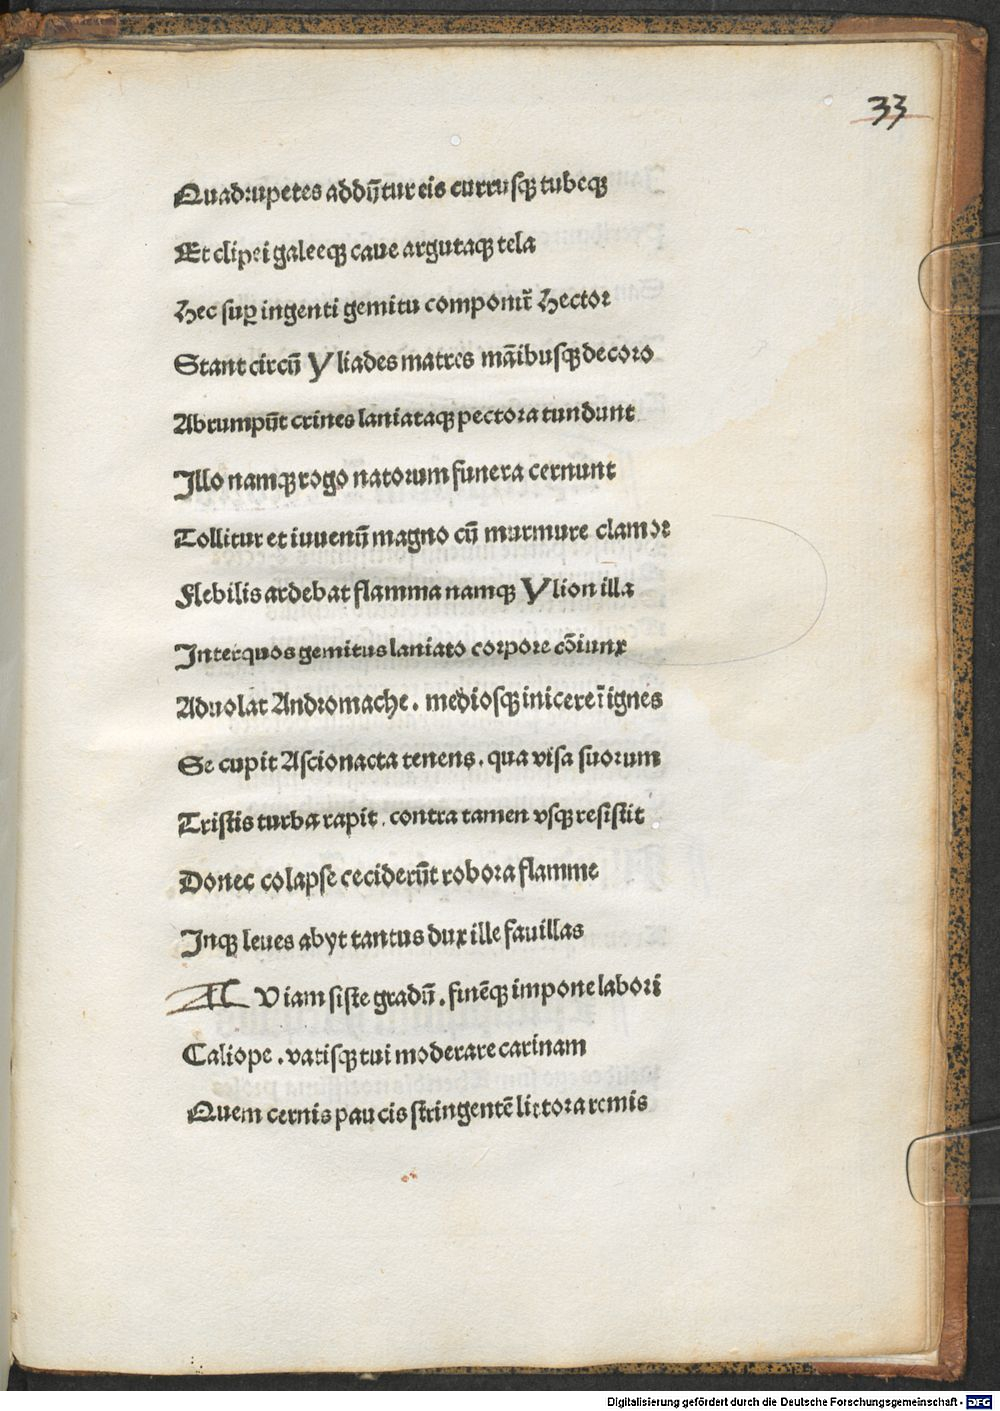 33
Quadrupetes addūtur eis currusqꝫ tubeqꝫ
Et clipei galeeqꝫ caue argutaqꝫ tela
Hec suꝑ ingenti gemitu componit̄ Hector
Stant circū Yliades matres mānibusqꝫ decoro
Abrumpūt crines laniataqꝫ pectora tundunt
Illo namqꝫ rogo natorum funera cernunt
Tollitur et iuuenū magno cū murmure clamor
Flebilis ardebat flamma namqꝫ Ylion illa
Inter quos gemitus laniato corpore cōiunx
Aduolat Andromache . mediosqꝫ inicere ī ignes
Se cupit Ascionacta tenens . qua visa suorum
Tristis turba rapit . contra tamen vsqꝫ resistit
Donec colapse ceciderūt robora flamme
Inqꝫ leues abyt tantus dux ille fauillas
A Viam siste gradū . finēqꝫ impone labori
Caliope . vatisqꝫ tui moderare carinam
Quem cernis paucis stringentē littora remis
Digitalisierung gefördert durch die Deutsche Forschungsgemeinschaft - DFG